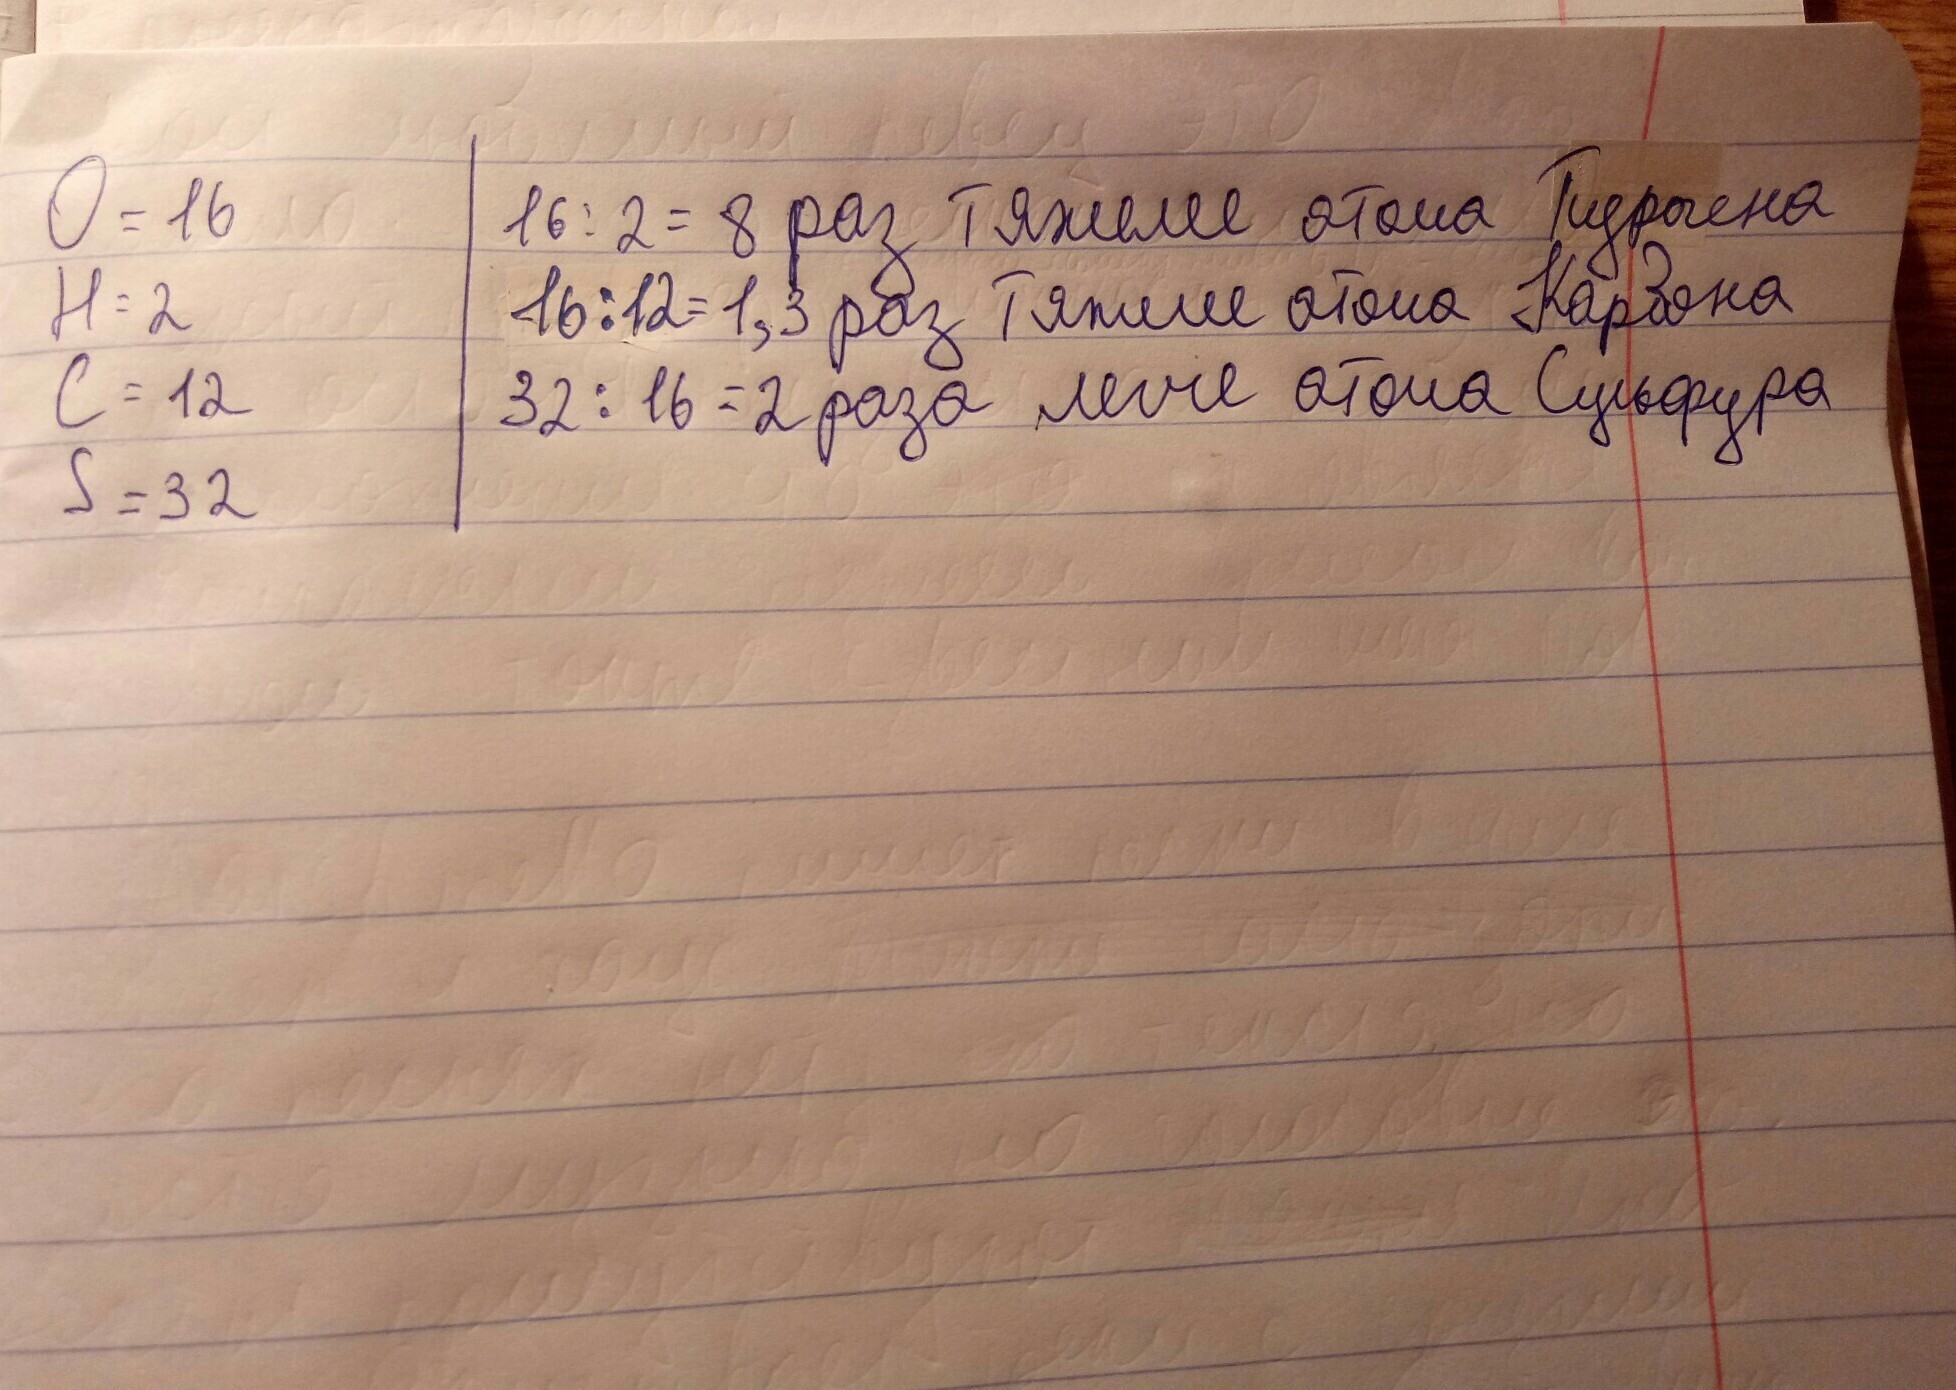 O = 16
H = 2
C = 12
S = 32
16 : 2 = 8 раз тяжелее атома Гидрогена
16 : 12 = 1,3 раз тяжелее атома Карбона
32 : 16 = 2 раза легче атома Сульфура